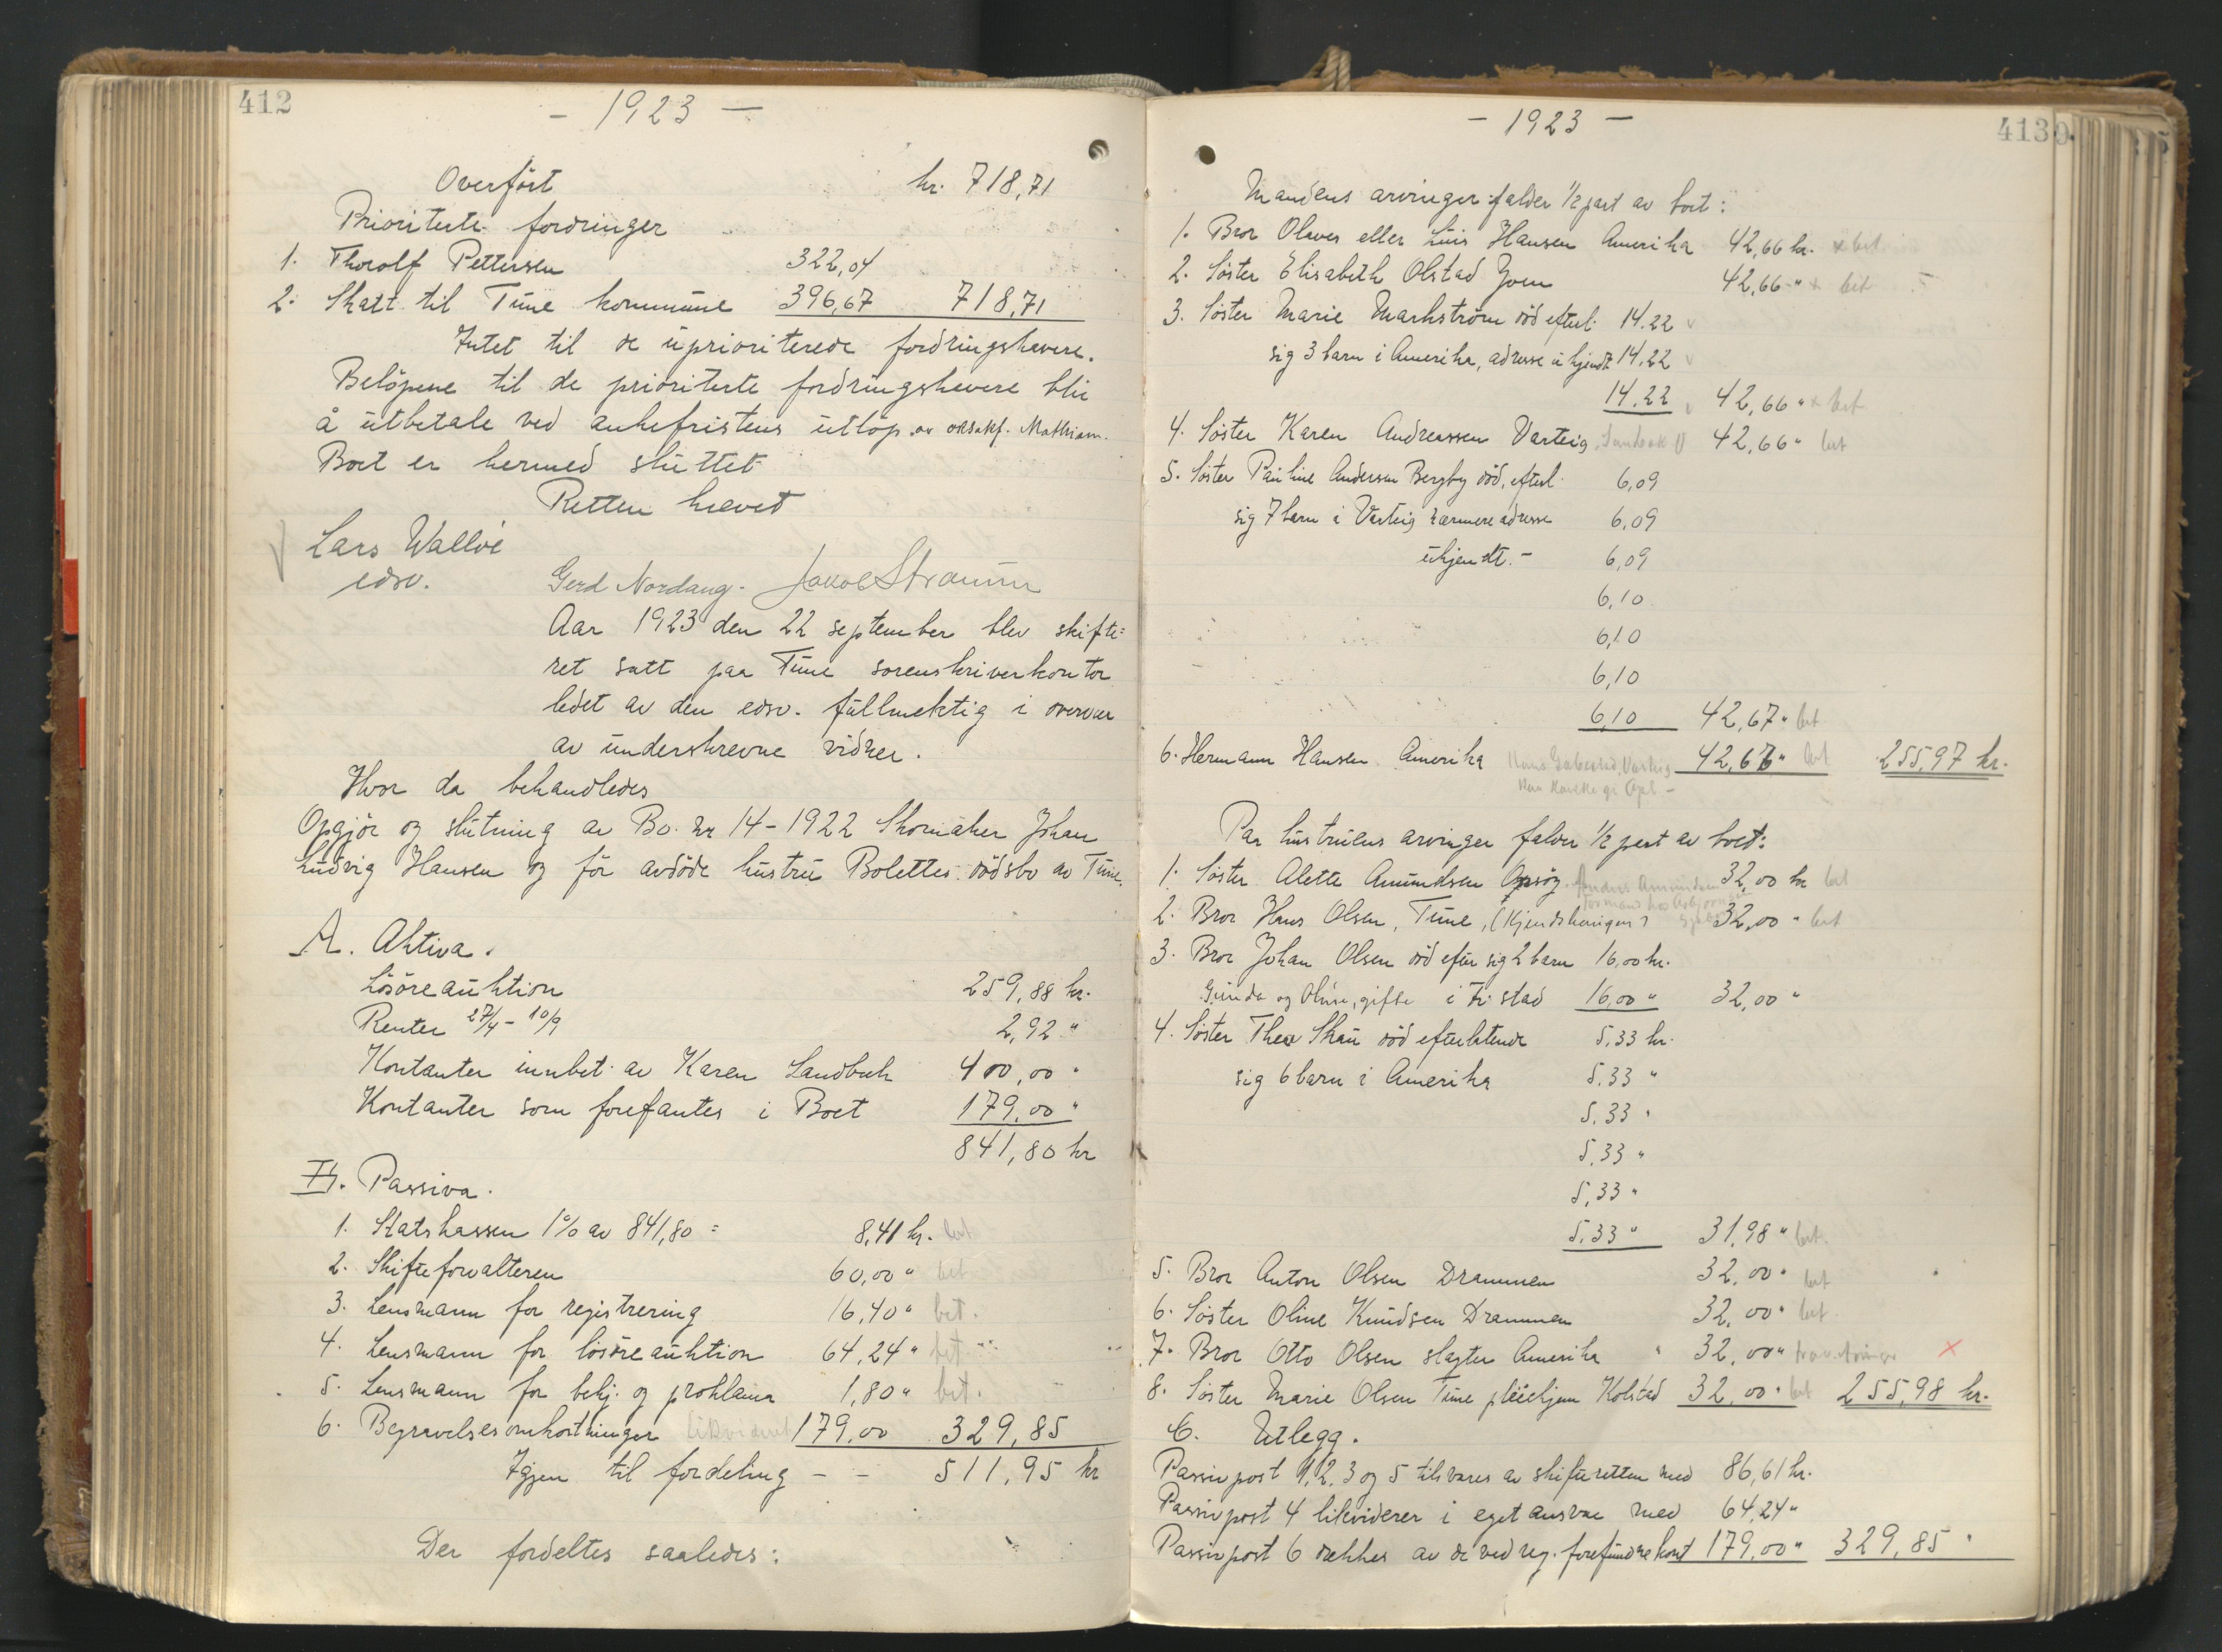 412
- 1923 -
Overført kr. 718,71
Prioriterte fordringer
1. Thorolf Pettersen 322,04
2. Skatt til Tune kommune 396,67 718,71
Intet til de uprioriterede fordringshavere.
Beløpene til de prioriterte fordringshavere blir
å utbetale ved ankefristens utløp av
Boet er hermed sluttet
Retten hævet
Lars Walløe
edsv. Gerd Nordaug. Jakob Straum
Aar 1923 den 22 september blev skifte=
ret satt paa Tune sorenskriverkontor
ledet av den edsv. fullmektig i overvær
av underskrevne vidner.
Hvor da behandledes
Opgjør og slutning av Bo. nr 14-1922 Skomaker Johan
Ludvig Hansen og før avdøde hustru Bolettes dødsbo av Tune.
A. Aktiva.
Løsøreauktion 259,88 kr.
Renter 27/4 - 10/9 2,92 "
Kontanter innbet. av Karen Sandbæk 400,00 "
Kontanter som forefantes i Boet 179,00 "
841,80 kr
B. Passiva.
1. Statskassen 1% av 841,80 = 8,41 kr. bet
2. Skifteforvalteren 60,00 " bet
3. Lensmann for registrering 16,40 " bet.
4. Lensmann for løsøreauktion 64,24 " bet
5. Lensmann for bekj. og proklama 1,80 " bet.
6. Begravelsesomkostninger likvidert 179,00 329,85
Igjen til fordeling - - 511,95 kr
Der fordeltes saaledes:
413
- 1923 -
Mandens arvinger falder 1/2 part av boet:
1. Bror Olaves eller Luis Hansen Amerika 42,66 kr. x bet
2. Søster Elisabeth Olstad Moen 42,66 " x bet
3. Søster Marie Markstrøm død efterl. 14.22 v
sig 3 barn i Amerika, adresse ukjendt 14,22 v
14.22 v 42,66 " x bet
4. Søster Karen Andreassen Varteig, Sandbæk 42,66 " bet
5. Søster Pauline Andersen Bergby død, efterl. 6,09
sig 7 barn i Varteig nærmere adresse 6,09
ukjendt. - 6,09
6,10
6,10
6,10
6,10 42,67 " bet
6. Hermann Hansen Amerika 42,66 " bet 255,97 kr.
Paa hustruens arvinger falder 1/2 part av boet:
1. Søster Alette Amundsen Opsøy. Anders Amundsen 32,00 kr bet
2. Bror Hans Olsen, Tune, (Kjendshaugen) 32,00 " bet
3. Bror Johan Olsen død efter sig 2 barn 16,00 kr.
Gunda og Oline, gifte i Fr.stad 16,00 " 32,00 "
4. Søster Thea Skau død efterlatende 5,33 kr.
sig 6 barn i Amerika 5,33 "
5.33 "
5,33 "
5,33 "
5,33 " 31,98 " bet.
5. Bror Anton Olsen Drammen 32,00 " bet
6. Søster Oline Knudsen Drammen 32,00 " bet
7. Bror Otto Olsen slagter Amerika 32,00 " x
8. Søster Marie Olsen Tune pleiehjem Kolstad 32,00 " bet 255,98 kr.
C. Utlegg.
Passivpost 1, 2, 3 og 5 tilsvares av skifteretten med 86,61 kr.
Passivpost 4 likviderer i eget ansvar med 64,24 "
Passivpost 6 dekkes av de ved reg. forefundne kont 179,00 " 329,85 "